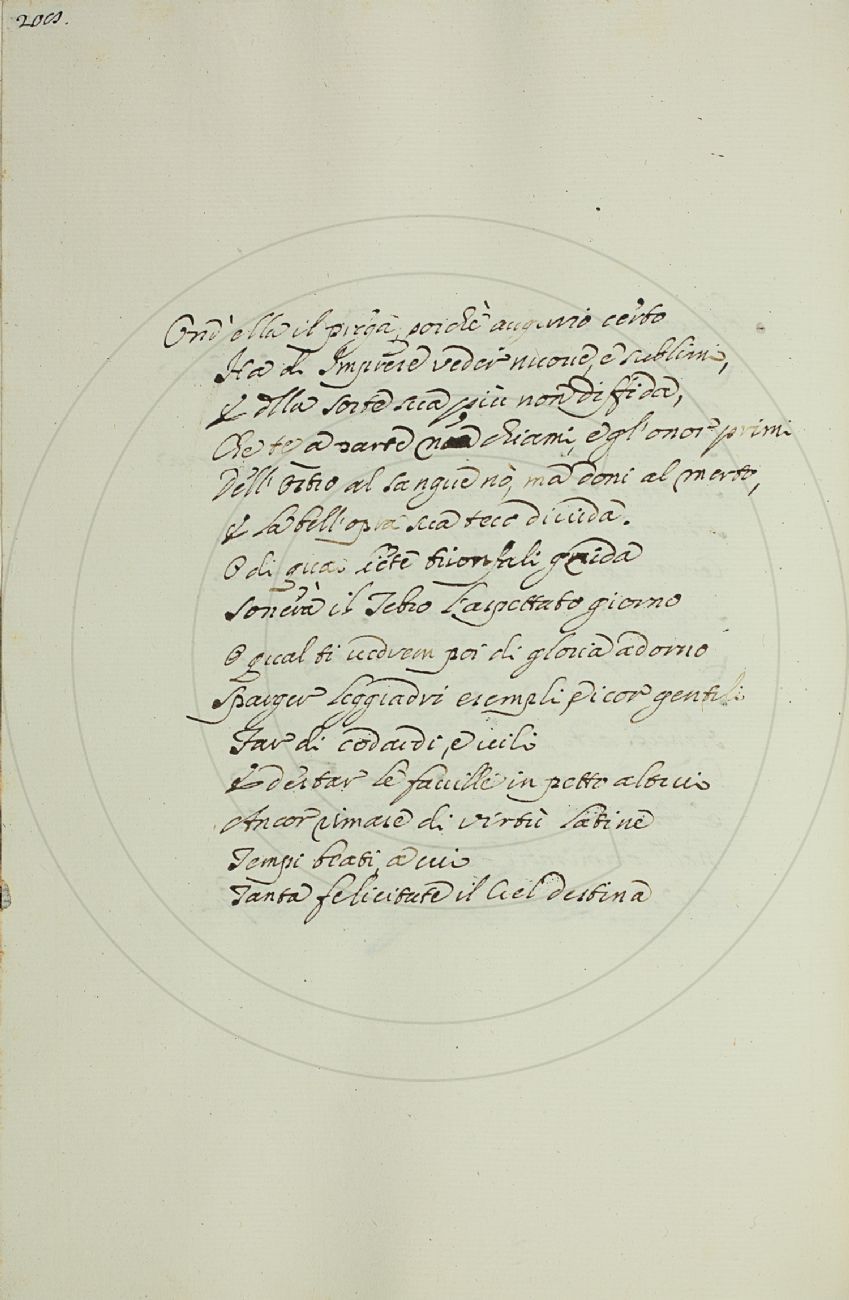 200.
Ond' ella il piega, poichè augurio certo
Ha di Imprese veder nuove, e sublimi,
E della sorte sua più non diffida,
Che te a parte chiami, e gl'onor primi
Dell' Ostro al sangue nò, mà doni al merto,
E la bell'opra sua teco divida.
O di quai liete trionfali grida
Sonerà il Tebro l'aspettato giorno
O qual ti vedrem poi di gloria adorno
Sparger leggiadri esempli, e i cor gentili
Far di codardi, e vili
E destar le faville in petto altrui
Ancor rimase di virtù latine
Tempi beati, a cui
Tanta felicitate il Ciel destina